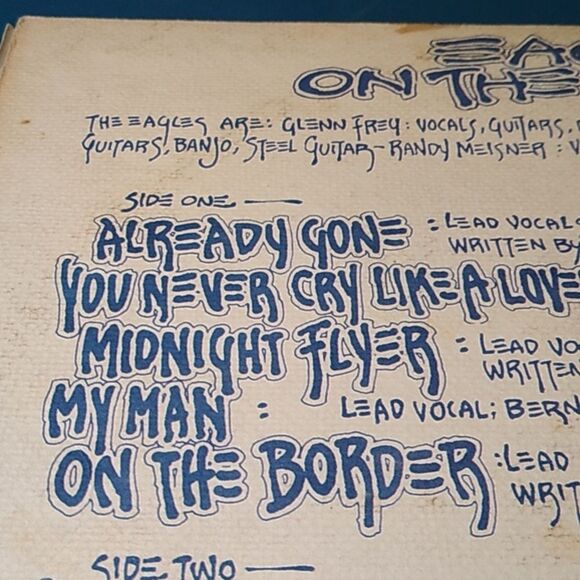 EAG
ON THE
THE EAGLES ARE: GLENN FREY: VOCALS, GUITARS,
GUITARS, BANJO, STEEL GUITAR - RANDY MEISNER : V
SIDE ONE —
ALREADY GONE : LEAD VOCAL
WRITTEN BY
YOU NEVER CRY LIKE A LOVE
MIDNIGHT FLYER : LEAD VO
WRITTEN
MY MAN : LEAD VOCAL; BERN
ON THE BORDER : LEAD
WRIT
SIDE TWO —